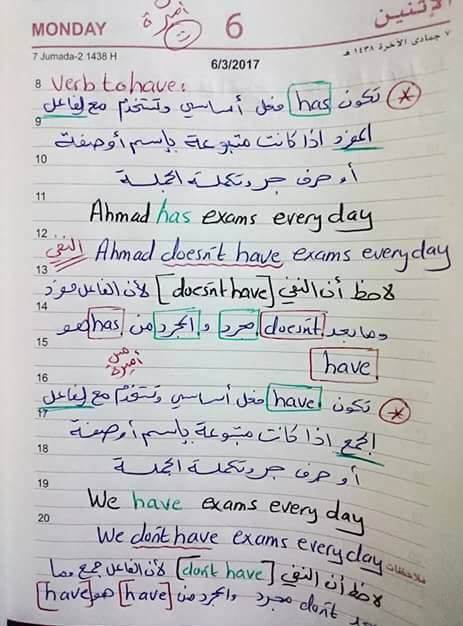 MONDAY
أميرة
6
الإثنين
7 Jumada-2 1438 H
6/3/2017
٧ جمادى الآخرة ١٤٣٨ هـ
8 Verb to have:
تكون has فعل أساسي وتستخدم مع الفاعل
9
المفرد اذا كانت متبوعة بإسم أو صفة
10
أو حرف جر وتكملة الجملة
11
Ahmad has exams every day
12
النفي Ahmad doesn't have exams everyday
13
لاحظ أن النفي [doesn't have] لأن الفاعل مفرد
14
وما بعد doesn't مجرد والمجرد من has هو
15
have
مس أميرة
16
تكون have فعل أساسي وتستخدم مع الفاعل
17
الجمع اذا كانت متبوعة بإسم أو صفة
18
أو حرف جر وتكملة الجملة
19
We have exams every day
20
We don't have exams everyday
ملاحظات
لاحظ أن النفي [don't have] لأن الفاعل جمع وما
بعد don't مجرد والمجرد من [have] هو [have]